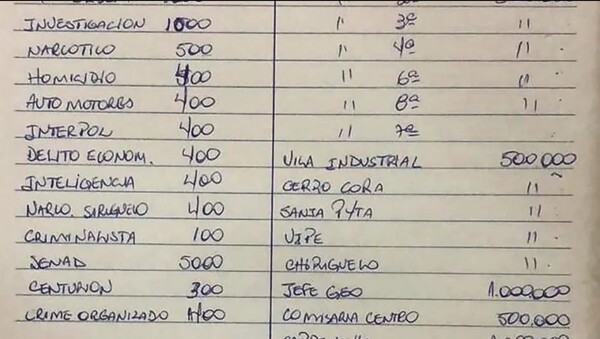 INVESTIGACION 1000 " 3ª "
NARCOTICO 500 " 4ª "
HOMICIDIO 400 " 6ª "
AUTOMOTORES 400 " 8ª "
INTERPOL 400 " 7ª
DELITO ECONOM. 400 VILA INDUSTRIAL 500.000
INTELIGENCIA 400 CERRO CORA "
NARCO. SIRIGUELO 400 SANTA "
CRIMINALISTA 100 "
SENAD 5000 CHIRIGUELO "
CENTURION 300 JEFE GEO 1.000.000
CRIME ORGANIZADO COMISARIA CENTRO 500.000